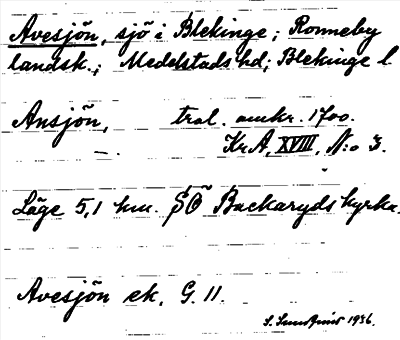 Avesjön, sjö i Blekinge; Ronneby
landsk.; Medelstads hd; Blekinge l
Ansjön, tral. omkr. 1700.
Kr.A, XVIII, N:o 3.
Läge 5,1 km. SÖ Backaryds kyrka.
Avesjön ek. G. 11.
S. 1936.